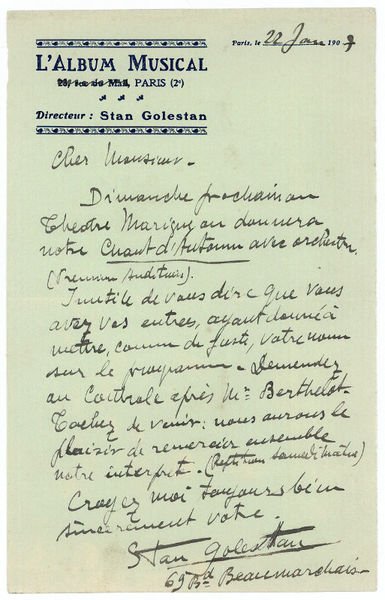 Paris, le 22 Janv 1907
L'ALBUM MUSICAL
23, rue du Mail, PARIS (2e)
Directeur : Stan Golestan
Cher Monsieur -
Dimanche prochain au
Théâtre Marigny on donnera
votre Chant d'Automne avec orchestre.
(Première Auditions).
Inutile de vous dire que vous
avez vos entrées, ayant donné à
mettre, comme de juste, votre nom
sur le programme - Demandez
au Contrôle après Mr Berthelot.
Tachez de venir : nous aurons le
plaisir de remercier ensemble
votre interprète. (Répétition samedi matin)
Croyez moi toujours bien
sincèrement vôtre.
Stan Golestan
69 Bd Beaumarchais -